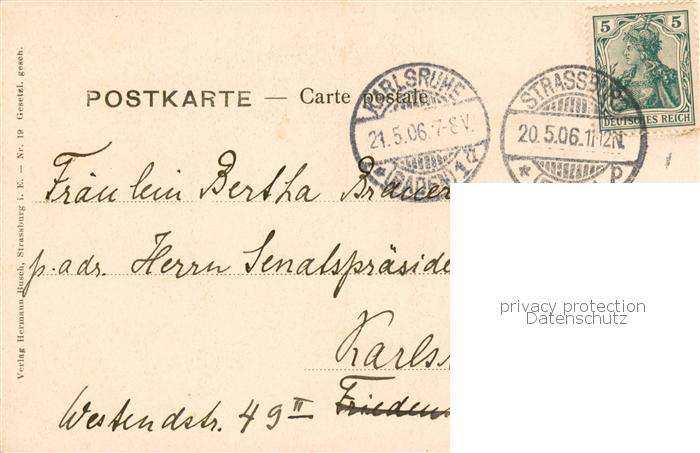 5 5
DEUTSCHES REICH
KARLSRUHE
21.5.06.7-8V.
*(BADEN)1d
STRASSBURG
20.5.06.11-12N.
POSTKARTE — Carte postale
Fräulein Bertha
p. adr. Herrn Senatspräside
Karls
Westendstr. 49 II Frieden
Verlag Hermann Busch, Strassburg i. E. — Nr. 19 Gesetzl. gesch.
privacy protection
Datenschutz